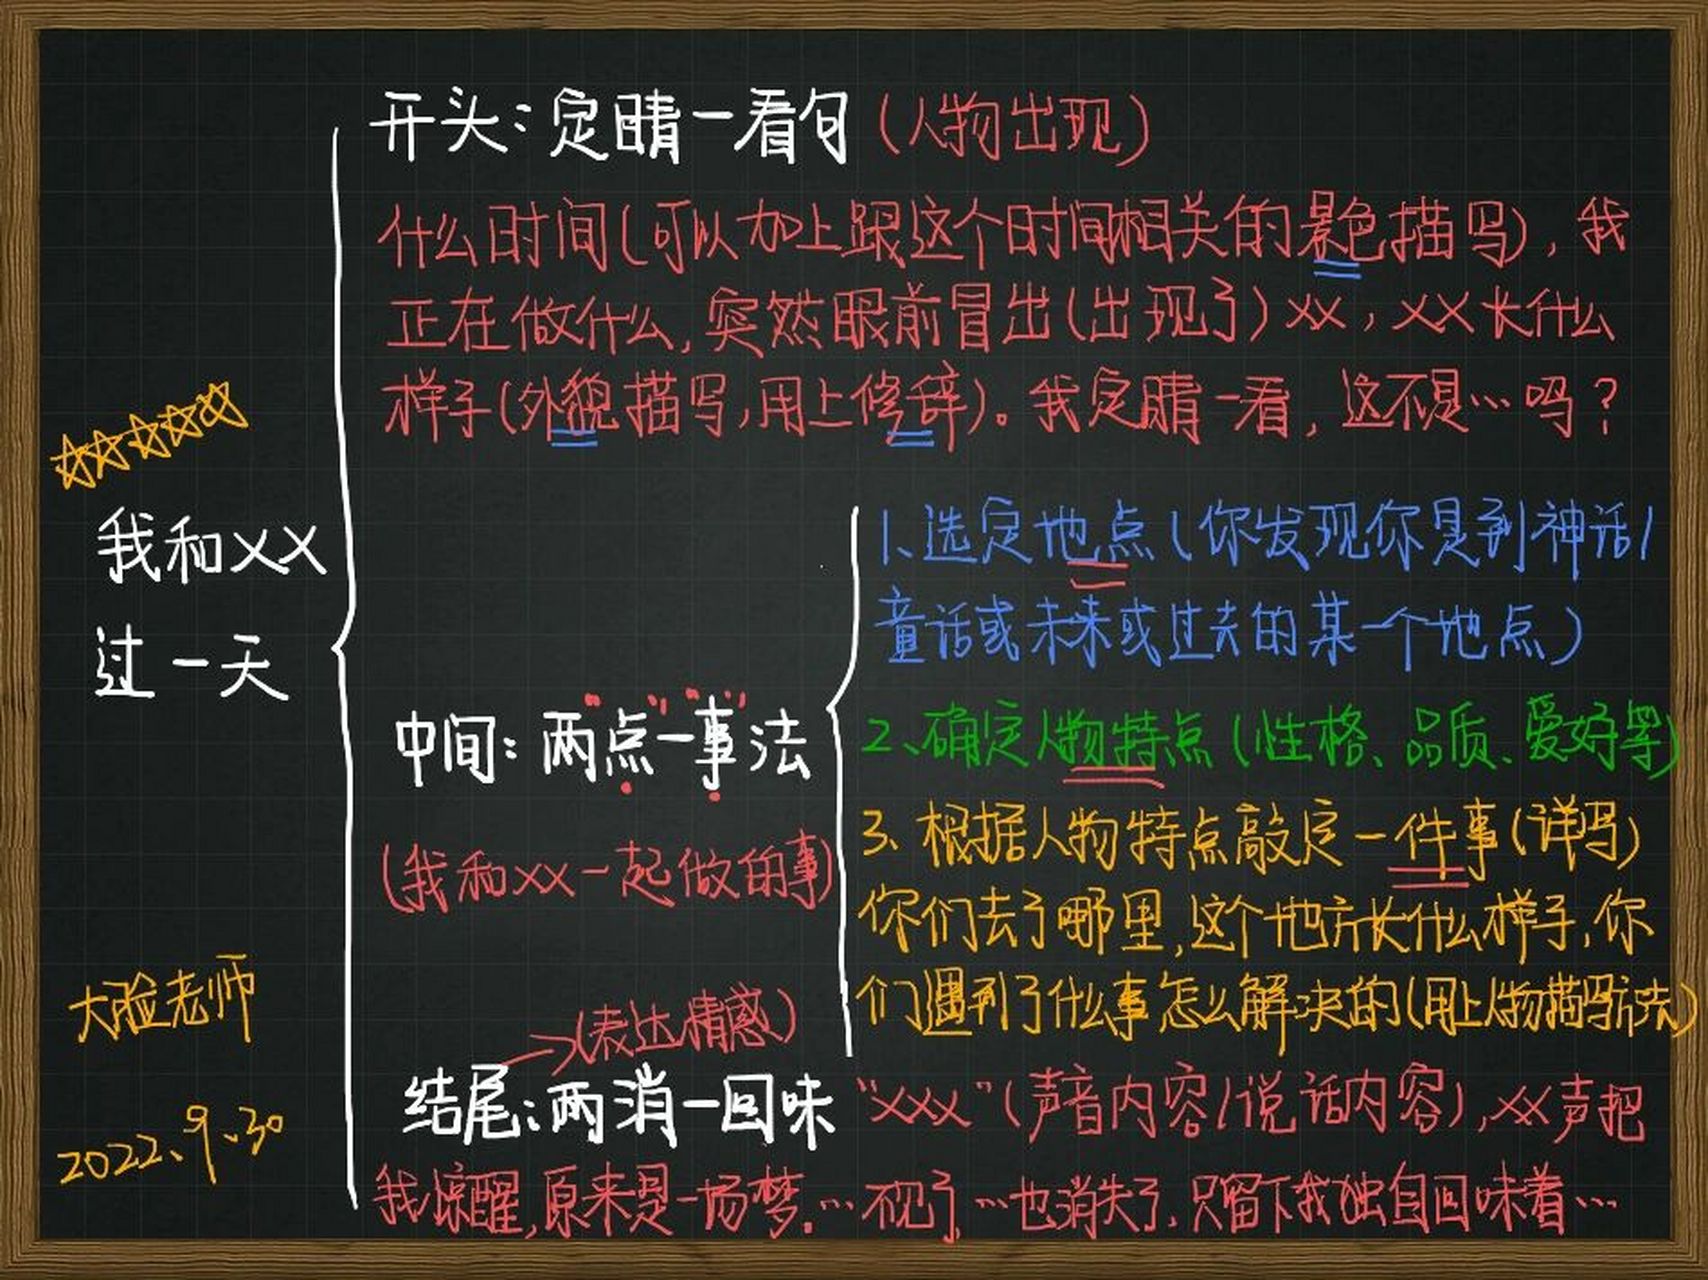 开头：定睛一看句（人物出现）
什么时间（可以加上跟这个时间相关的景色描写），我
正在做什么，突然眼前冒出（出现了）XX，XX长什么
样子（外貌描写，用上修辞）。我定睛一看，这不是…吗？
我和XX
过一天
中间：两点一事法
（我和XX一起做的事）
1、选定地点（你发现你是到神话/
童话或未来或过去的某一个地点）
2、确定人物特点（性格、品质、爱好等）
3、根据人物特点敲定一件事（详写）
你们去了哪里，这个地方长什么样子，你
们遇到了什么事怎么解决的（用上人物描写方法）
（表达情感）
结尾：两消一回味
“XXX”（声音内容/说话内容），XX声把
我惊醒，原来是一场梦。…不见了，…也消失了，只留下我独自回味着…
大脸老师
2022、9、30